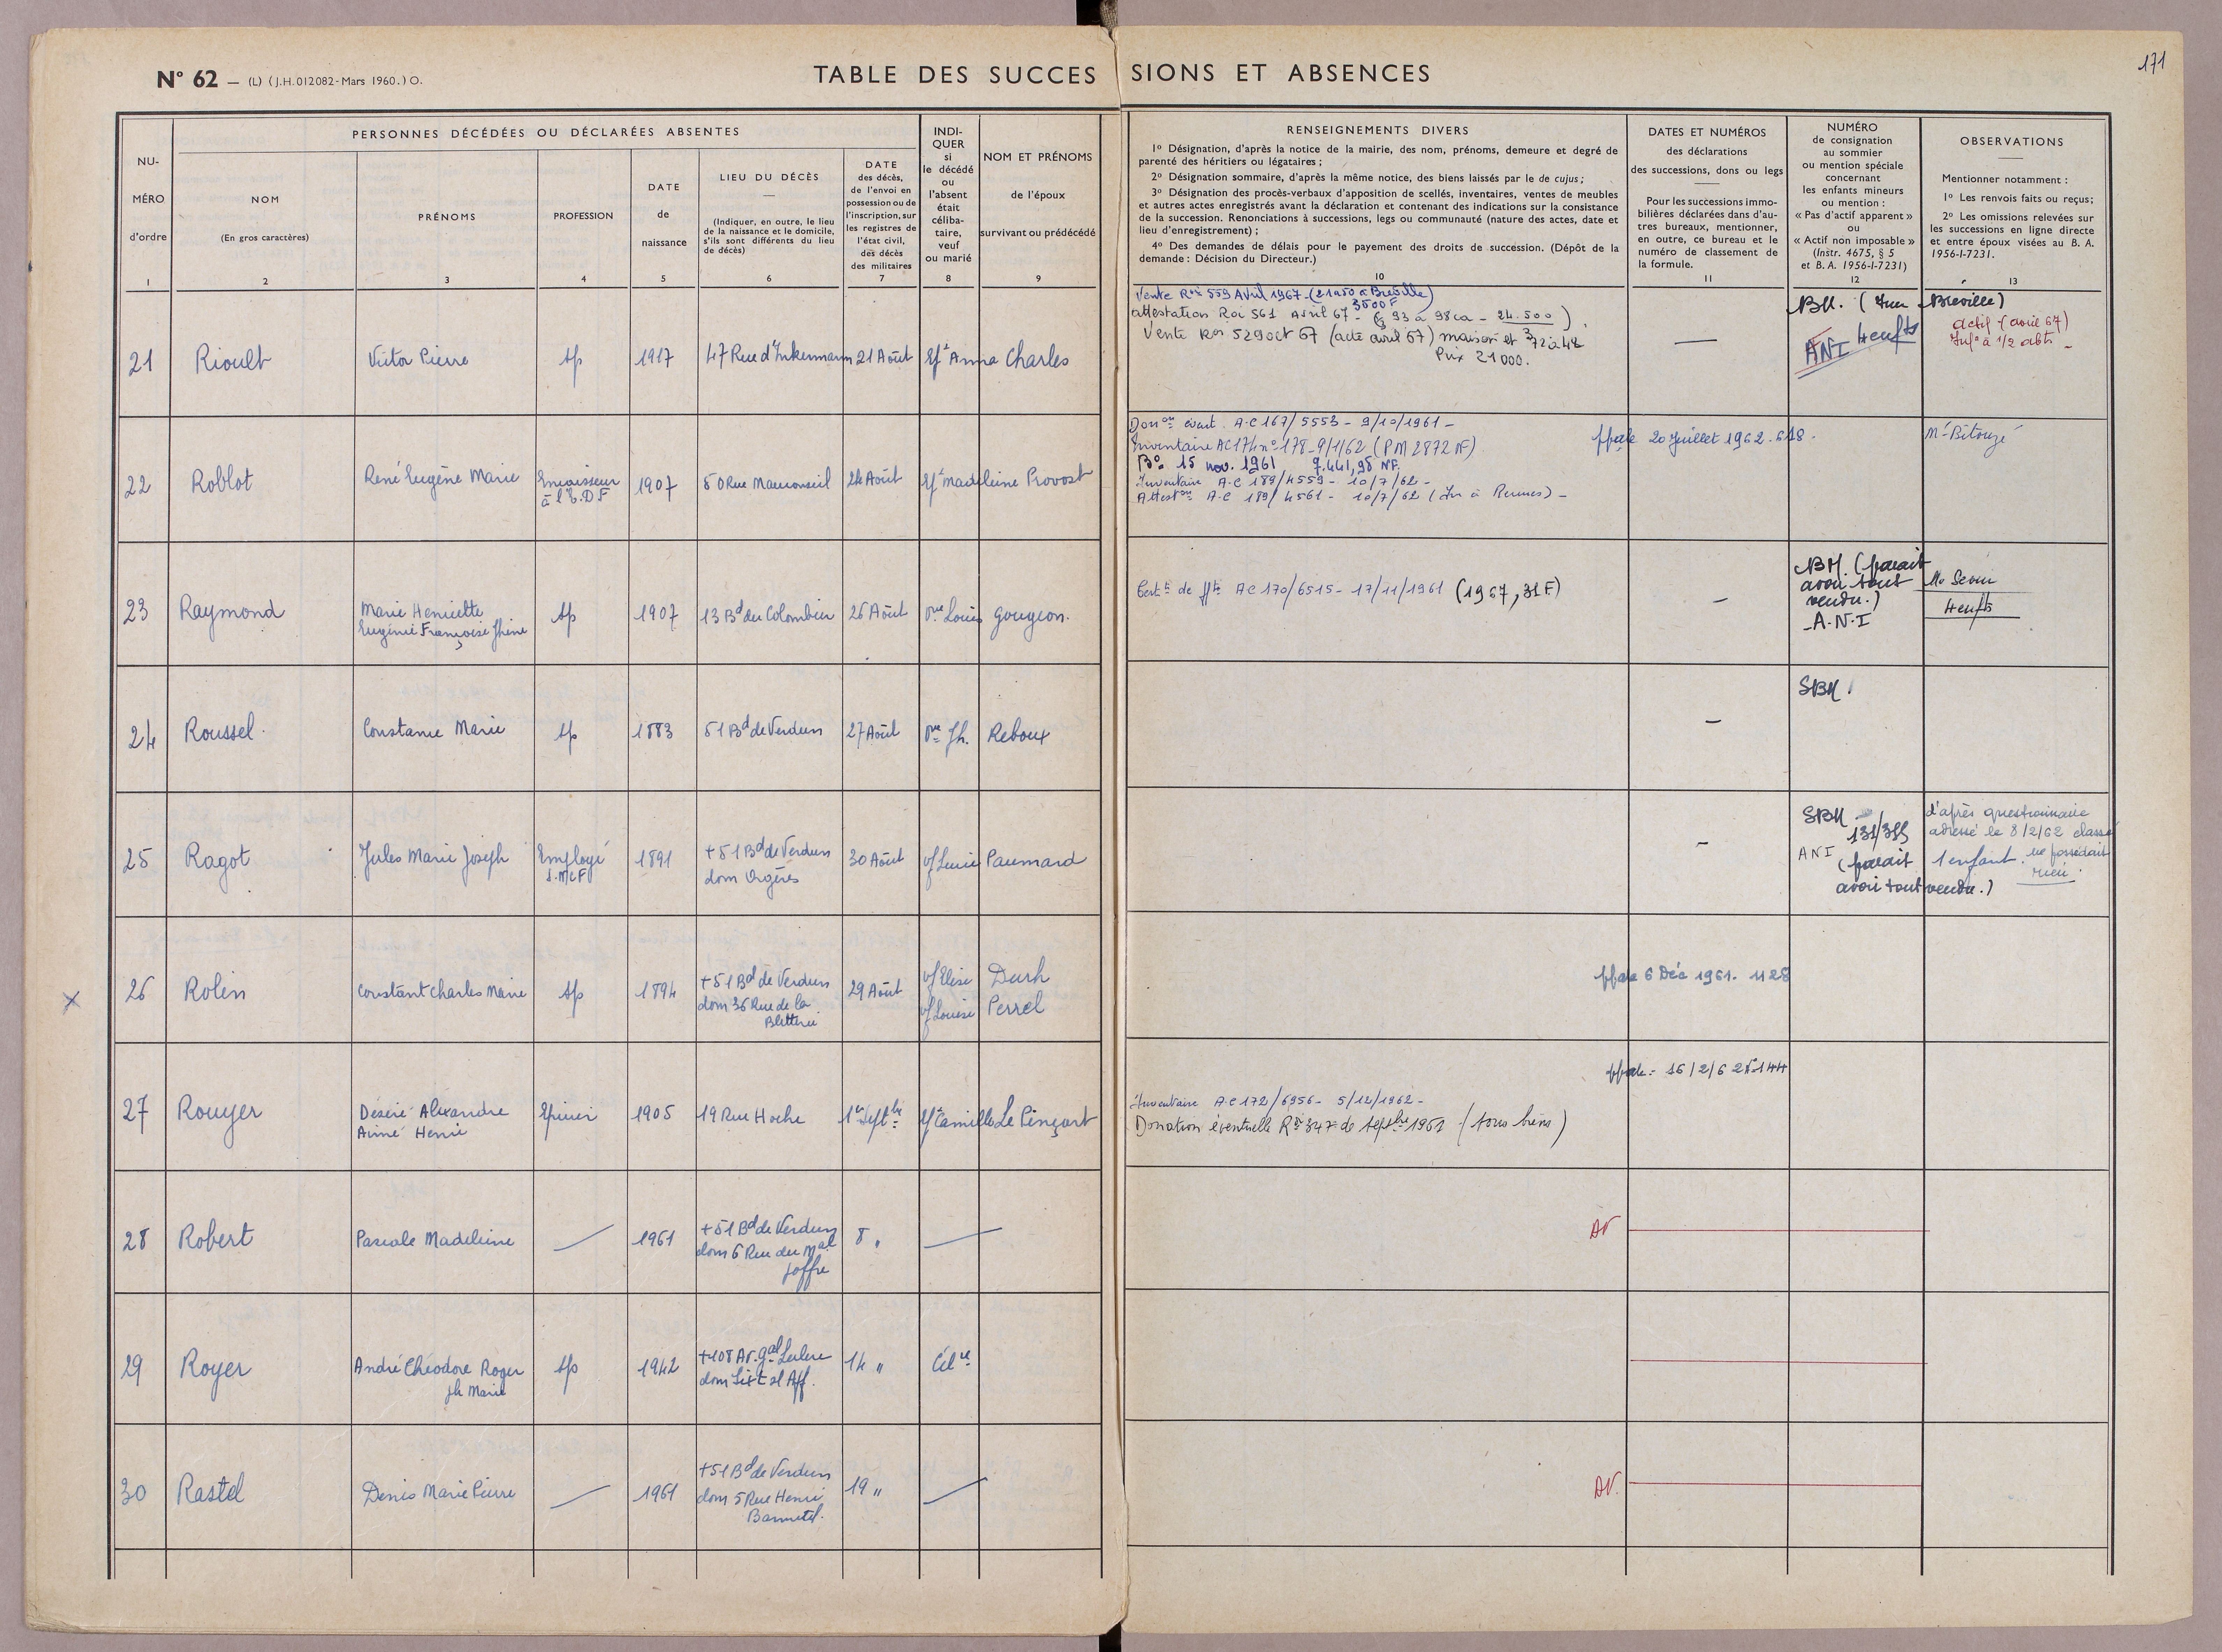 171
N° 62 — (L) (J.H. 012082 - Mars 1960.) O.
TABLE DES SUCCESSIONS ET ABSENCES
NU-
MÉRO
d'ordre
1
PERSONNES DÉCÉDÉES OU DÉCLARÉES ABSENTES
NOM
(En gros caractères)
2
PRÉNOMS
3
PROFESSION
4
DATE
de
naissance
5
LIEU DU DÉCÈS
(Indiquer, en outre, le lieu
de la naissance et le domicile,
s'ils sont différents du lieu
de décès)
6
DATE
des décès,
de l'envoi en
possession ou de
l'inscription, sur
les registres de
l'état civil,
des décès
des militaires
7
INDI-
QUER
si
le décédé
ou
l'absent
était
céliba-
taire,
veuf
ou marié
8
NOM ET PRÉNOMS
de l'époux
survivant ou prédécédé
9
RENSEIGNEMENTS DIVERS
1° Désignation, d'après la notice de la mairie, des nom, prénoms, demeure et degré de
parenté des héritiers ou légataires ;
2° Désignation sommaire, d'après la même notice, des biens laissés par le de cujus ;
3° Désignation des procès-verbaux d'apposition de scellés, inventaires, ventes de meubles
et autres actes enregistrés avant la déclaration et contenant des indications sur la consistance
de la succession. Renonciations à successions, legs ou communauté (nature des actes, date et
lieu d'enregistrement) ;
4° Des demandes de délais pour le payement des droits de succession. (Dépôt de la
demande : Décision du Directeur.)
10
DATES ET NUMÉROS
des déclarations
des successions, dons ou legs
Pour les successions immo-
bilières déclarées dans d'au-
tres bureaux, mentionner,
en outre, ce bureau et le
numéro de classement de
la formule.
11
NUMÉRO
de consignation
au sommier
ou mention spéciale
concernant
les enfants mineurs
ou mention :
« Pas d'actif apparent »
ou
« Actif non imposable »
(Instr. 4675, § 5
et B. A. 1956-I-7231)
12
OBSERVATIONS
Mentionner notamment :
1° Les renvois faits ou reçus ;
2° Les omissions relevées sur
les successions en ligne directe
et entre époux visées au B. A.
1956-I-7231.
13
21 Rioult Victor Pierre sp 1917 47 Rue d'Inkermann 21 Août Anna Charles
Vente 559 Avril 1967 - (21a50 à Breville)
3500 F
attestation 561 Avril 67 - 93 a 98ca - 24.500)
Vente 529 oct 67 (acte avril 67) maison et 72a42
Prix 21000.
—
BM. (Breville)
ANI
actif - (avril 67)
à 1/2
22 Roblot René Eugène Marie Encaisseur à l'E.D.F 1907 50 Rue Mauconseil 24 Août Madeleine Provost
A.C 167/5553 - 9/10/1961 -
Inventaire AC 174 n° 178 - 9/1/62 (PM 2872 NF)
15 nov. 1961 9.441,98 NF.
Inventaire A.C 189/4559 - 10/7/62 -
A.C 189/4561 - 10/7/62 (Im à Rennes) -
20 Juillet 1962. 618.
Me Bitouzé
23 Raymond Marie Henriette Eugénie Françoise Jhine sp 1907 13 Bd du Colombier 26 Août Vve Louis Gougeon.
de AC 170/6515 - 17/11/1961 (1967,31F)
—
BM. (parait
avoir tout
vendu.)
A.N.I
24 Roussel Constance Marie sp 1883 51 Bd de Verdun 27 Août Vve Jh. Reboux
—
SBM.
25 Ragot Jules Marie Joseph Employé S.N.C.F 1891 + 51 Bd de Verdun dom Orgères 30 Août vf Lucie Paumard
—
SBM
131/355
ANI
(parait
avoir tout vendu.)
d'après questionnaire
adressé le 8/2/62 classé
1 enfant. ne possédait
rien.
26 Rolin Constant Charles Marie sp 1894 + 51 Bd de Verdun dom 36 Rue de la 29 Août vf Elise Durh vf Louise Perrel
6 Déc 1961. 1128
27 Rouyer Désiré Alexandre Aimé Henri Epicier 1905 19 Rue Hoche 1er Septbre Camille Le Pinçart
16/2/62 N°144
Inventaire A.C 172/6956 - 5/12/1962 -
Donation éventuelle 347 de septbre 1961 (tous biens)
28 Robert Pascale Madeleine — 1961 + 51 Bd de Verdun dom 6 Rue du Mal Joffre 8 " —
29 Royer André Théodore Roger Jh Marie sp 1942 + 108 Av. Gal Leclerc 14 " Célre
30 Rastel Denis Marie Pierre — 1961 + 51 Bd de Verdun dom 5 Rue Henri 19 " —